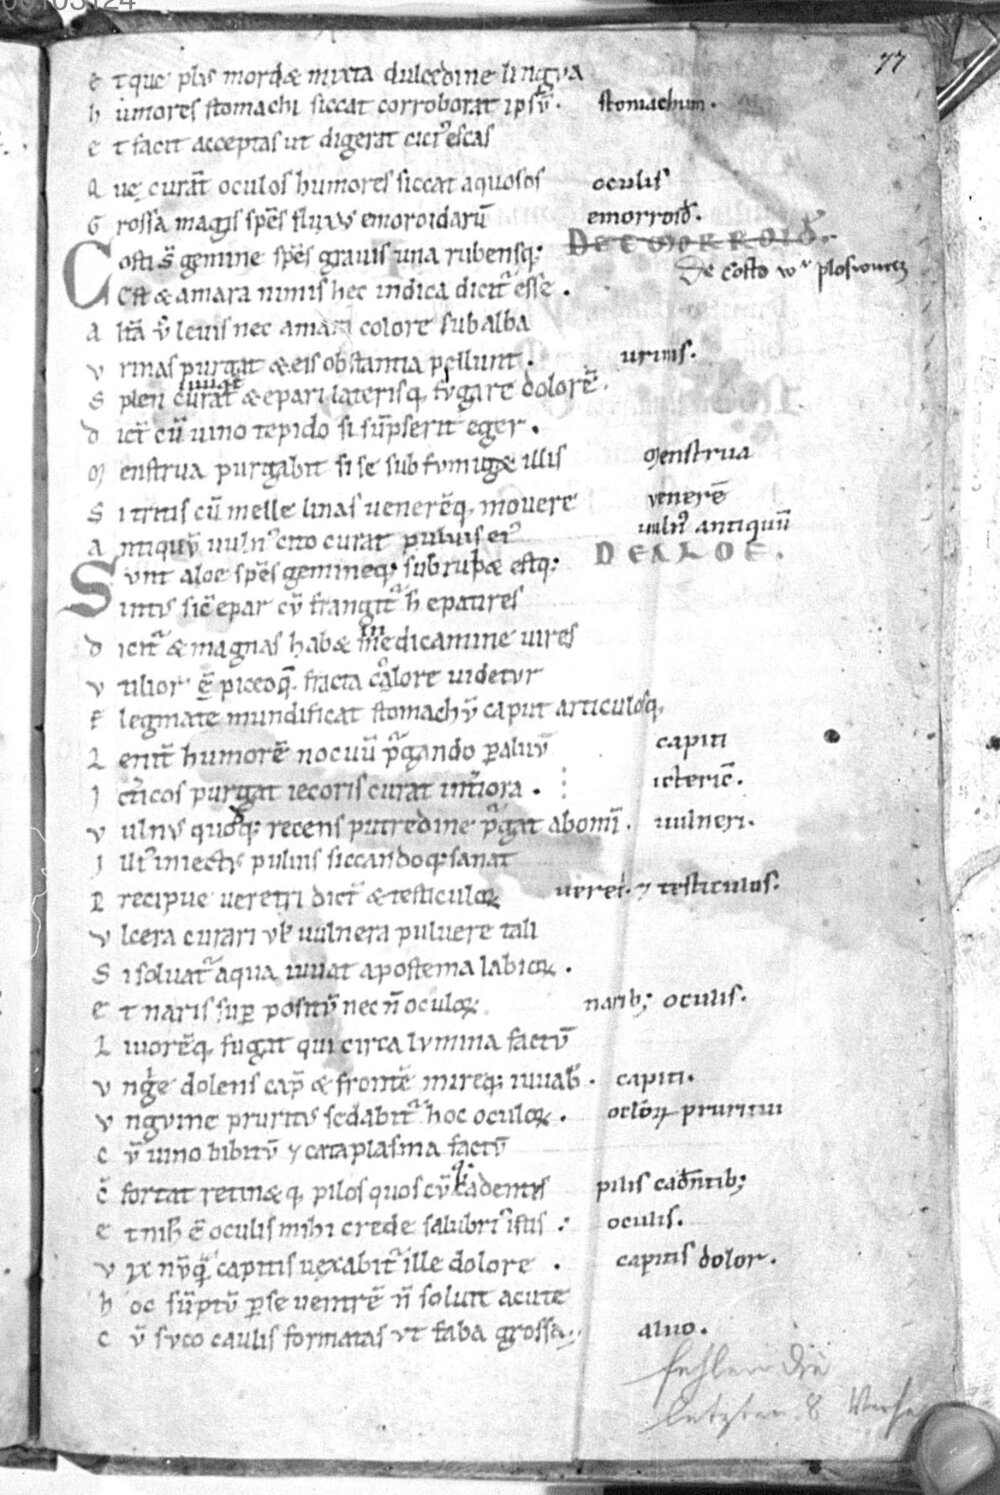 77
et que plus mordæ mixta dulcedine lingua
humores stomachi siccat corroborat ipsū. stomachum.
et facit acceptas ut digerat cici9 escas
Que curat̄ oculos humores siccat aquosos oculis
Grossa magis spēs fluxus emoroidarū emorroid̄.
DE EMORROID̄.
Costi s̄ gemine spēs gravis una rubensq;
De Costo
Est & amara nimis hec indica dicit esse.
altā ū levis nec amara colore subalba
vrinas purgat & eis obstantia pellunt. urinis.
iuuat
Splen curat & epari laterisq, fugare dolorē.
dicit̄ cū uino tepido si sūpserit eger.
Menstrua purgabit si se subfumigæ illis Menstrua
Si tritis cū melle linas venerēq, movere venerē
antiquū uuln9 cito curat puluis ei9 uuln9 antiquū
DE ALOE.
Sunt aloe spēs gemineq; subrubæ estq;
intus sic epar cū frangit h epatires
dicit & magnas habæ medicamine uires
vtilior ē piceoq, fracta colore uidetur
Flegmate mundificat stomachū caput articulosq,
Lenit humorē nocuū pgando p aluū capiti
Ictericos purgat iecoris curat interiora. icteric̄.
vulnus quoq; recens putredine pgat abomī. uulneri.
Illi iniectus puluis siccandoq; sanat
Precipue veretri dict̄ & testiculoꝝ ueret. ⁊ testiculos.
vlcera curari vl uulnera puluere tali
Si soluat aqua iuuat apostema labioꝝ.
Et naris sup positū nec n̄ oculoꝝ narib; oculis.
Liuorēq, fugat qui circa lumina factū
vnge dolens cap̄ & frontē mireq; iuuab. capiti.
vnguine pruritus sedabit hoc oculoꝝ. oclōꝝ pruritui
cū uino bibitū ⁊ cataplasma factū
c̄fortat retinæq, pilos quos cū cadentes pilis cadentib;
et nih ē oculis mihi crede salubri9 istis. oculis.
vix nūq capitis vexabit ille dolore. capitis dolor.
hoc sūptū p se ventrē n̄ soluit acute
cū suco caulis formatas vt faba grossa aluo.
fehlen die
letzten 8 Verse